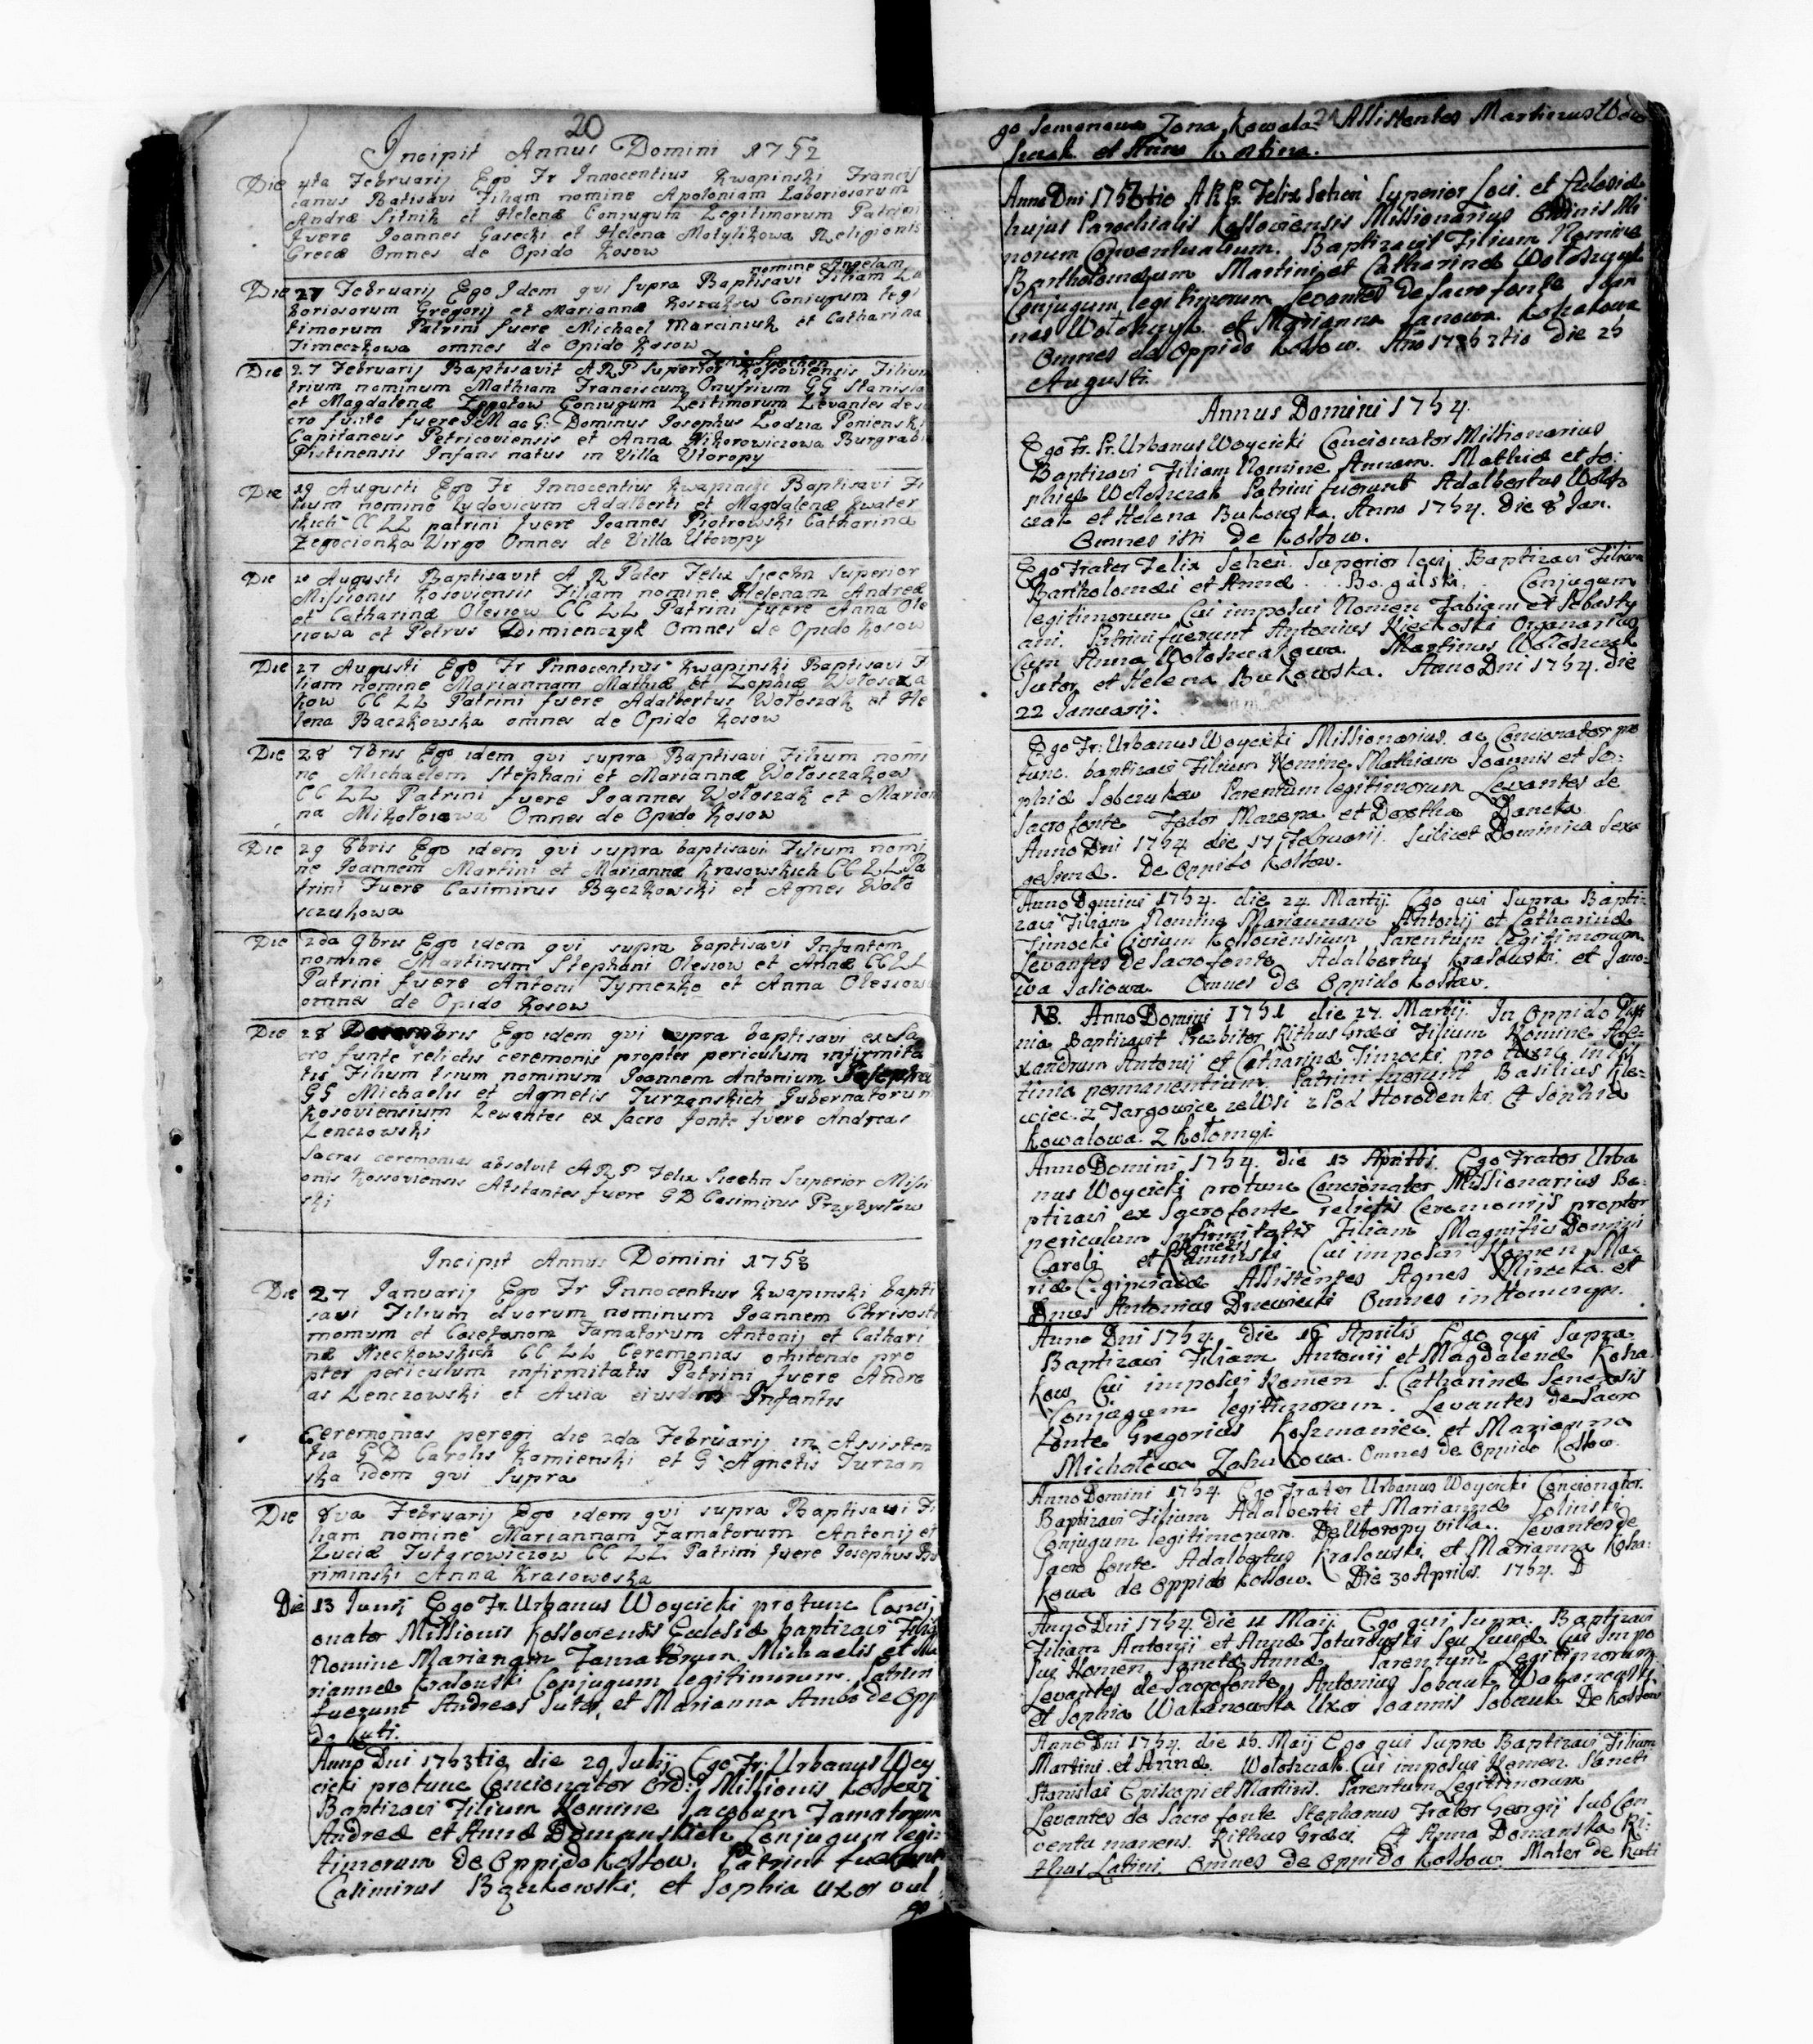 20
Incipit Annus Domini 1752
Die 4ta Februarij Ego Fr Innocentius Kwapinski Francis
canus Batisavi Filiam nomine Apoloniam Laboriosorum
Andræ Sitnik et Helenæ Coniugum Legitimorum Patrini
fuere Joannes Gasecki et Helena Motylikowa Religionis
Grecæ Omnes de Opido Kosow
nomine Angelam
Die 27 Februarij Ego Idem qvi Supra Baptisavi Filiam La
boriosorum Gregorij et Mariannæ Koszakow Coniugum legi
timorum Patrini fuere Michael Marciniuk et Catharina
Timeczkowa omnes de Opido Kosow
Die 27 Februarij Baptisavit A R P Superior Kosoviensis Filium
trium nominum Mathiam Franciscum Onufrium GG Stanisla
et Magdalenæ Coniugum Leitimorum Levantes de sa
cro funte fuere M ac G: Dominus Josephus Łodzia Ponienski
Capitaneus Petricoviensis et Anna Nikorowiczowa Burgrabi
Pistinensis Infans natus in Villa Utoropy
Die 19 Augusti Ego Fr Innocentius Kwapinski Baptisavi Fi
lium nomine Ludovicum Adalberti et Magdalenæ Kwater
skich CC LL patrini fuere Joannes Piotrowski Catharina
Zegocionka Virgo Omnes de Villa Utoropy
Die Augusti Baptisavit A R Pater Felix Superior
Missionis Kosoviensis Filiam nomine Helenam Andreæ
et Catharinæ Olesiow CC LL Patrini fuere Anna Ole
siowa et Petrus Dimienczyk Omnes de Opido Kosow
Die 27 Augusti Ego Fr Innocentius Kwapinski Baptisavi F
liam nomine Mariannam Mathiæ et Zophiæ Wołoscza
kow CC LL Patrini fuere Adalbertus Wołoszak et He
lena Bączkowska omnes de Opido Kosow
Die 28 7bris Ego idem qvi supra Baptisavi Filium nomi
ne Michaelem Stephani et Mariannæ Wołosczakow
CC LL Patrini fuere Joannes Wołoszak et Marian
na Mikołoiowa Omnes de Opido Kosow
Die 29 8bris Ego idem qvi supra baptisavi Filium nomi
ne Joannem Martini et Mariannæ Krasowskich CC LL Pa
trini Fuere Casimirus Bączkowski et Agnes Woło
sczukowa
Die 2da 9bris Ego idem qvi supra baptisavi Infantem
nomine Martinum Stephani Olesiow et Annæ CC LL
Patrini fuere Antoni Tymeczko et Anna Olesiowa
omnes de Opido Kosow
Die 28 Decembris Ego idem qvi supra baptisavi ex Sa
cro funte relictis ceremonis propter periculum infirmita
tis Filium trium nominum Joannem Antonium
GG Michaelis et Agnetis Turzanskich Gubernatorum
Kosoviensium Lewantes ex sacro fonte fuere Andreas
Lenczowski
Sacras ceremonias absolvit A R P Felix Superior Missi
onis Kossoviensis Astantes fuere G D Casimirus Przybysłow
ski
Incipit Annus Domini 1753
Die 27 Januarij Ego Fr Innocentius Kwapinski bapti
savi Filium duorum nominum Joannem Chrisosto
momum et Famatorum Antonij et Cathari
næ Nieckowskich CC LL Ceremonias omitendo pro
pter periculum infirmitatis Patrini fuere Andre
as Lenczowski et Avia eiusdem Infantis
Ceremonias peregi die 2da Februarij in Assisten
tia G D Carolis Kamienski et G Agnetis Turzan
ska idem qvi Supra
Die 8va Februarij Ego idem qvi supra Baptisavi Fi
liam nomine Mariannam Famatorum Antonij et
Luciæ CC LL Patrini fuere Josephus
riminski Anna Krasowoska
Die 13 Junij Ego Fr. Urbanus Woycicki protunc Conci
onator Missionis Kossoviensis Ecclesiæ baptizavi Filia
Nomine Mariannam Famatorum Michaelis et Ma
riannæ Conjugum legitimorum. Patrini
fuerunt Andreas Sutor, et Marianna Ambo de Opp
do Kuti.
Anno Dni 1753tio die 29 Julij Ego Fr: Urbanus Woy
cicki protunc Concionator Ord: Missionis
Baptizavi Filium Nomine Jacobum Famatorum
Andreæ et Annæ Domanskich Conjugum legi=
timorum de Oppido Kossow. Patrini fuerunt
Casimirus Bączkowski, et Sophia uxor vul=
go
go Semenowa Zona Kowala 21 Assistentes Martinus
et Anna
Anno Dni 1753tio A R P. Felix Superior Loci et Ecclesiæ
hujus Parochialis Kossoviensis Missionarius Ordinis Mi
norum Conventualium. Baptizavit Filium Nomine
Bartholomæum Martini et Catharinæ Wołoszczuk
Conjugum legitimorum Levantes de Sacro fonte Joan
nes Wołoszczuk et Marianna Janowa
Omnes de Oppido Kossow. Ano 1753tio die 25
Augusti.
Annus Domini 1754.
Ego Fr. Urbanus Woycicki Concionator Missionarius
Baptizavi Filiam Nomine Annam. Mathiæ et So:
phiæ Wołoszczak Patrini fuerunt Adalbertus Woło
czak et Helena Bukowska. Anno 1754. Die 8 Jan.
Omnes isti de Kossow.
Ego Frater Felix Superior loci Baptizavi Filium
Bartholomæi et Annæ Conjugum
legitimorum Cui imposui Nomen Fabiani et Sebasty
ani. Patrini fuerunt Antonius Organarius
cum Anna Wołoszczakowa. Martinus Wołoszczak
Sutor et Helena Bukowska. Anno Dni 1754. die
22 Januarij.
Ego Fr: Urbanus Woycicki Missionarius ac Concionator pro
tunc. baptizavi Filium Nomine Mathiam Joannis et So:
phiæ Parentum legitimorum Levantes de
Sacro fonte Fedor Mazepa et Dancka
Anno Dni 1754 die 17 Februarij. Scilicet Dominica Sexa
gesimæ. De Oppido Kossow.
Anno Domini 1754. die 24. Martij. Ego qui Supra Bapti=
zavi Filiam Nomine Mariannam Antonij et Catharinæ
Civium Kossoviensium Parentum legitimorum.
Levantes de Sacro fonte Adalbertus Krasowski et Jano=
wa Omnes de Oppido Kossow.
NB. Anno Domini 1751 die 27. Martij. In Oppido
Baptizavit Presbiter Rithus Græci Filium Nomine Ale=
xandrum Antonij et Catharinæ pro tunc in
tinia permanentium. Patrini fuerunt Basilius
wiec. z Targowice ze Wsi z Pod Horodenki. Et Sophia
Kowalowa. z Kołomyi.
Anno Domini 1754. die 13 Aprilis. Ego Frater Urba
nus Woycicki protunc Concionator Missionarius Ba=
ptizavi ex Sacro fonte relictis Ceremonijs propter
periculum Infirmitatis Filiam Magnifici Domini
Caroli et Kaminski Cui imposui Nomen Ma=
riæ Assistentes Agnes et
Antonius Omnes in
Anno Dni 1754. die 16 Aprilis Ego qui Supra
Baptizavi Filiam Antonij et Magdalenæ Kosza
kow Cui imposui Nomen S. Catharinæ Senensis
Conjugum legitimorum. Levantes de Sacro
Fonte Gregorius et Marianna
Michałowa Omnes de Oppido Kossow.
Anno Domini 1754. Ego Frater Urbanus Woycicki Concionator.
Baptizavi Filium Adalberti et Mariannæ
Conjugum legitimorum. De Utoropy villa. Levantes de
Sacro fonte Adalbertus Krasowski et Marianna Kosza=
kowa de Oppido Kossow. Die 30 Aprilis. 1754.
Anno Dni 1754. die 11 Maij. Ego qui Supra. Baptizavi
Filiam Antonij et Annæ Cui Impo
sui Nomen Sanctæ Annæ Parentum Legitimorum.
Levantes de Sacro fonte Antonius
et Sophia Uxor Joannis De Kossow
Anno Dni 1754. die 15. Maij Ego qui Supra Baptizavi Filium
Martini et Annæ Wołoszczak. Cui imposui Nomen Sancti
Stanislai Episcopi et Martiris. Parentum Legitimorum
Levantes de Sacro fonte Stephanus Frater Georgij Sub Con
ventu manens. Rithus Græci. Et Anna Domanska Ri=
thus Latini Omnes de Oppido Kossow. Mater de Kuti